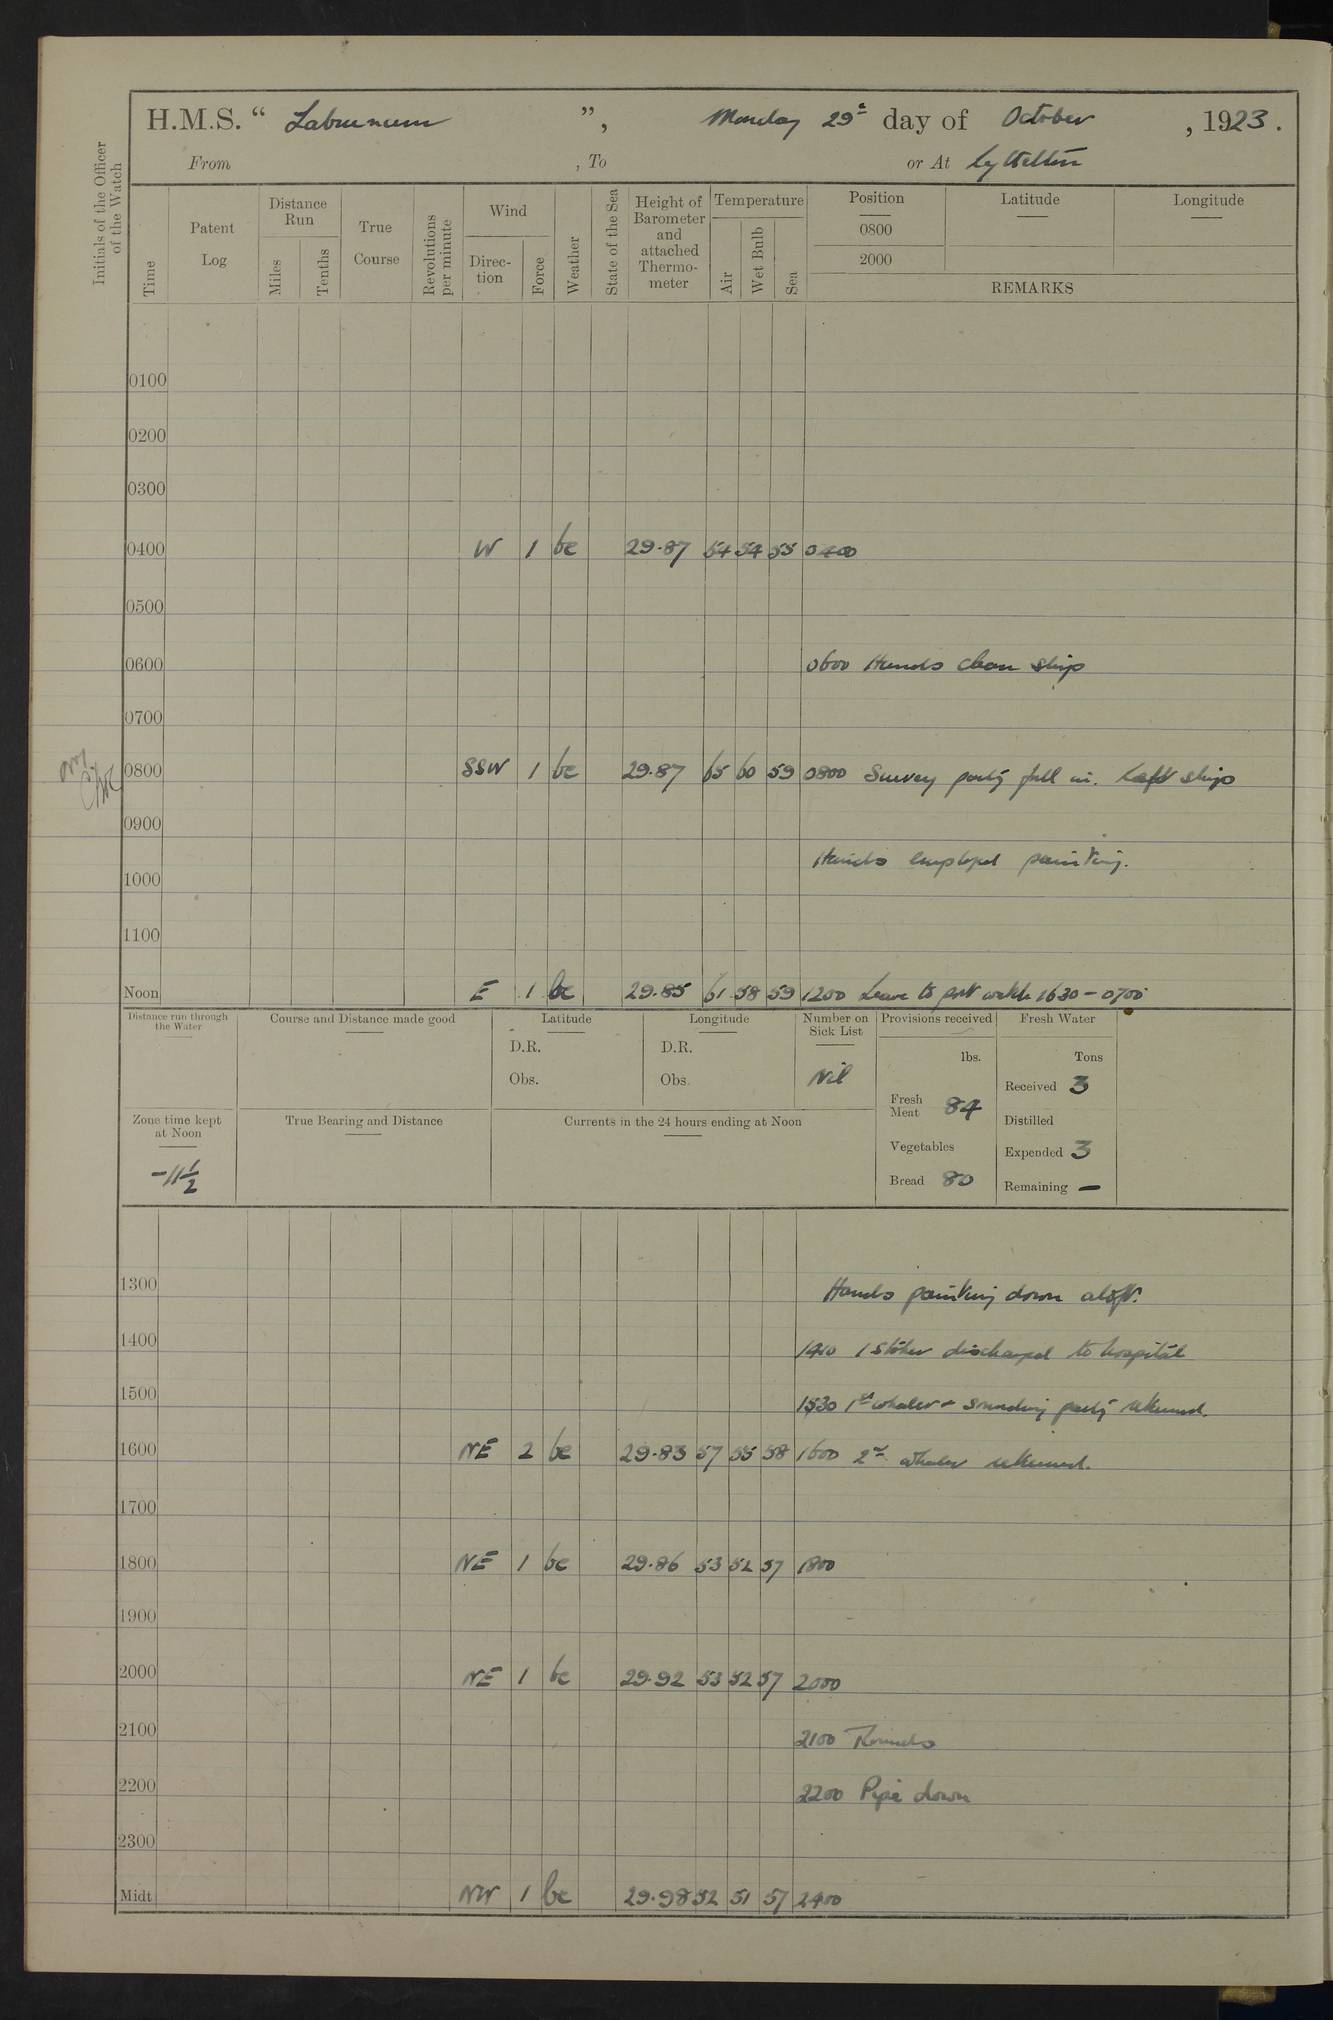 H.M.S. “ Laburnum ”, Monday 29th day of October , 1923.
From , To or At Lyttelton
Initials of the Officer of the Watch
Time
Patent Log
Distance Run
Miles
Tenths
True Course
Revolutions per minute
Wind
Direc-tion
Force
Weather
State of the Sea
Height of Barometer and attached Thermo-meter
Temperature
Air
Wet Bulb
Sea
Position Latitude Longitude
0800
2000
REMARKS
0100
0200
0300
0400 W 1 bc 29.87 54 54 55 0400
0500
0600 0600 Hands clean ship
0700
0800 SSW 1 bc 29.87 65 60 59 0800 Survey party fell in. Left ship
0900
Hands employed painting.
1000
1100
Noon E 1 bc 29.85 61 58 59 1200 Leave to port watch 1630 - 0700
Distance run through the Water
Course and Distance made good
Latitude
D.R.
Obs.
Longitude
D.R.
Obs.
Number on Sick List
Nil
Provisions received
lbs.
Fresh Meat 84
Vegetables
Bread 80
Fresh Water
Tons
Received 3
Distilled
Expended 3
Remaining —
Zone time kept at Noon
-11½
True Bearing and Distance
Currents in the 24 hours ending at Noon
1300 Hands painting down aloft.
1400 1410 1 Stoker discharged to hospital
1500 1530 1st whaler + sounding party returned.
1600 NE 2 bc 29.83 57 55 58 1600 2nd whaler returned.
1700
1800 NE 1 bc 29.86 53 52 57 1800
1900
2000 NE 1 bc 29.92 53 52 57 2000
2100 2100 Rounds
2200 2200 Pipe down
2300
Midt NW 1 bc 29.98 52 51 57 2400